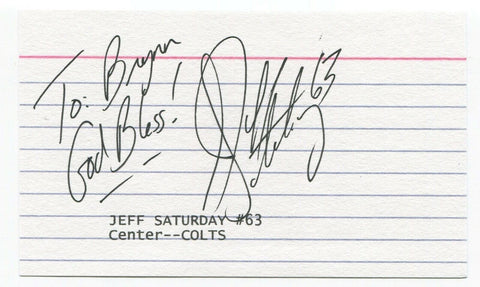 To: Bryan
God Bless!
Jeff Saturday 63
JEFF SATURDAY #63
Center--COLTS